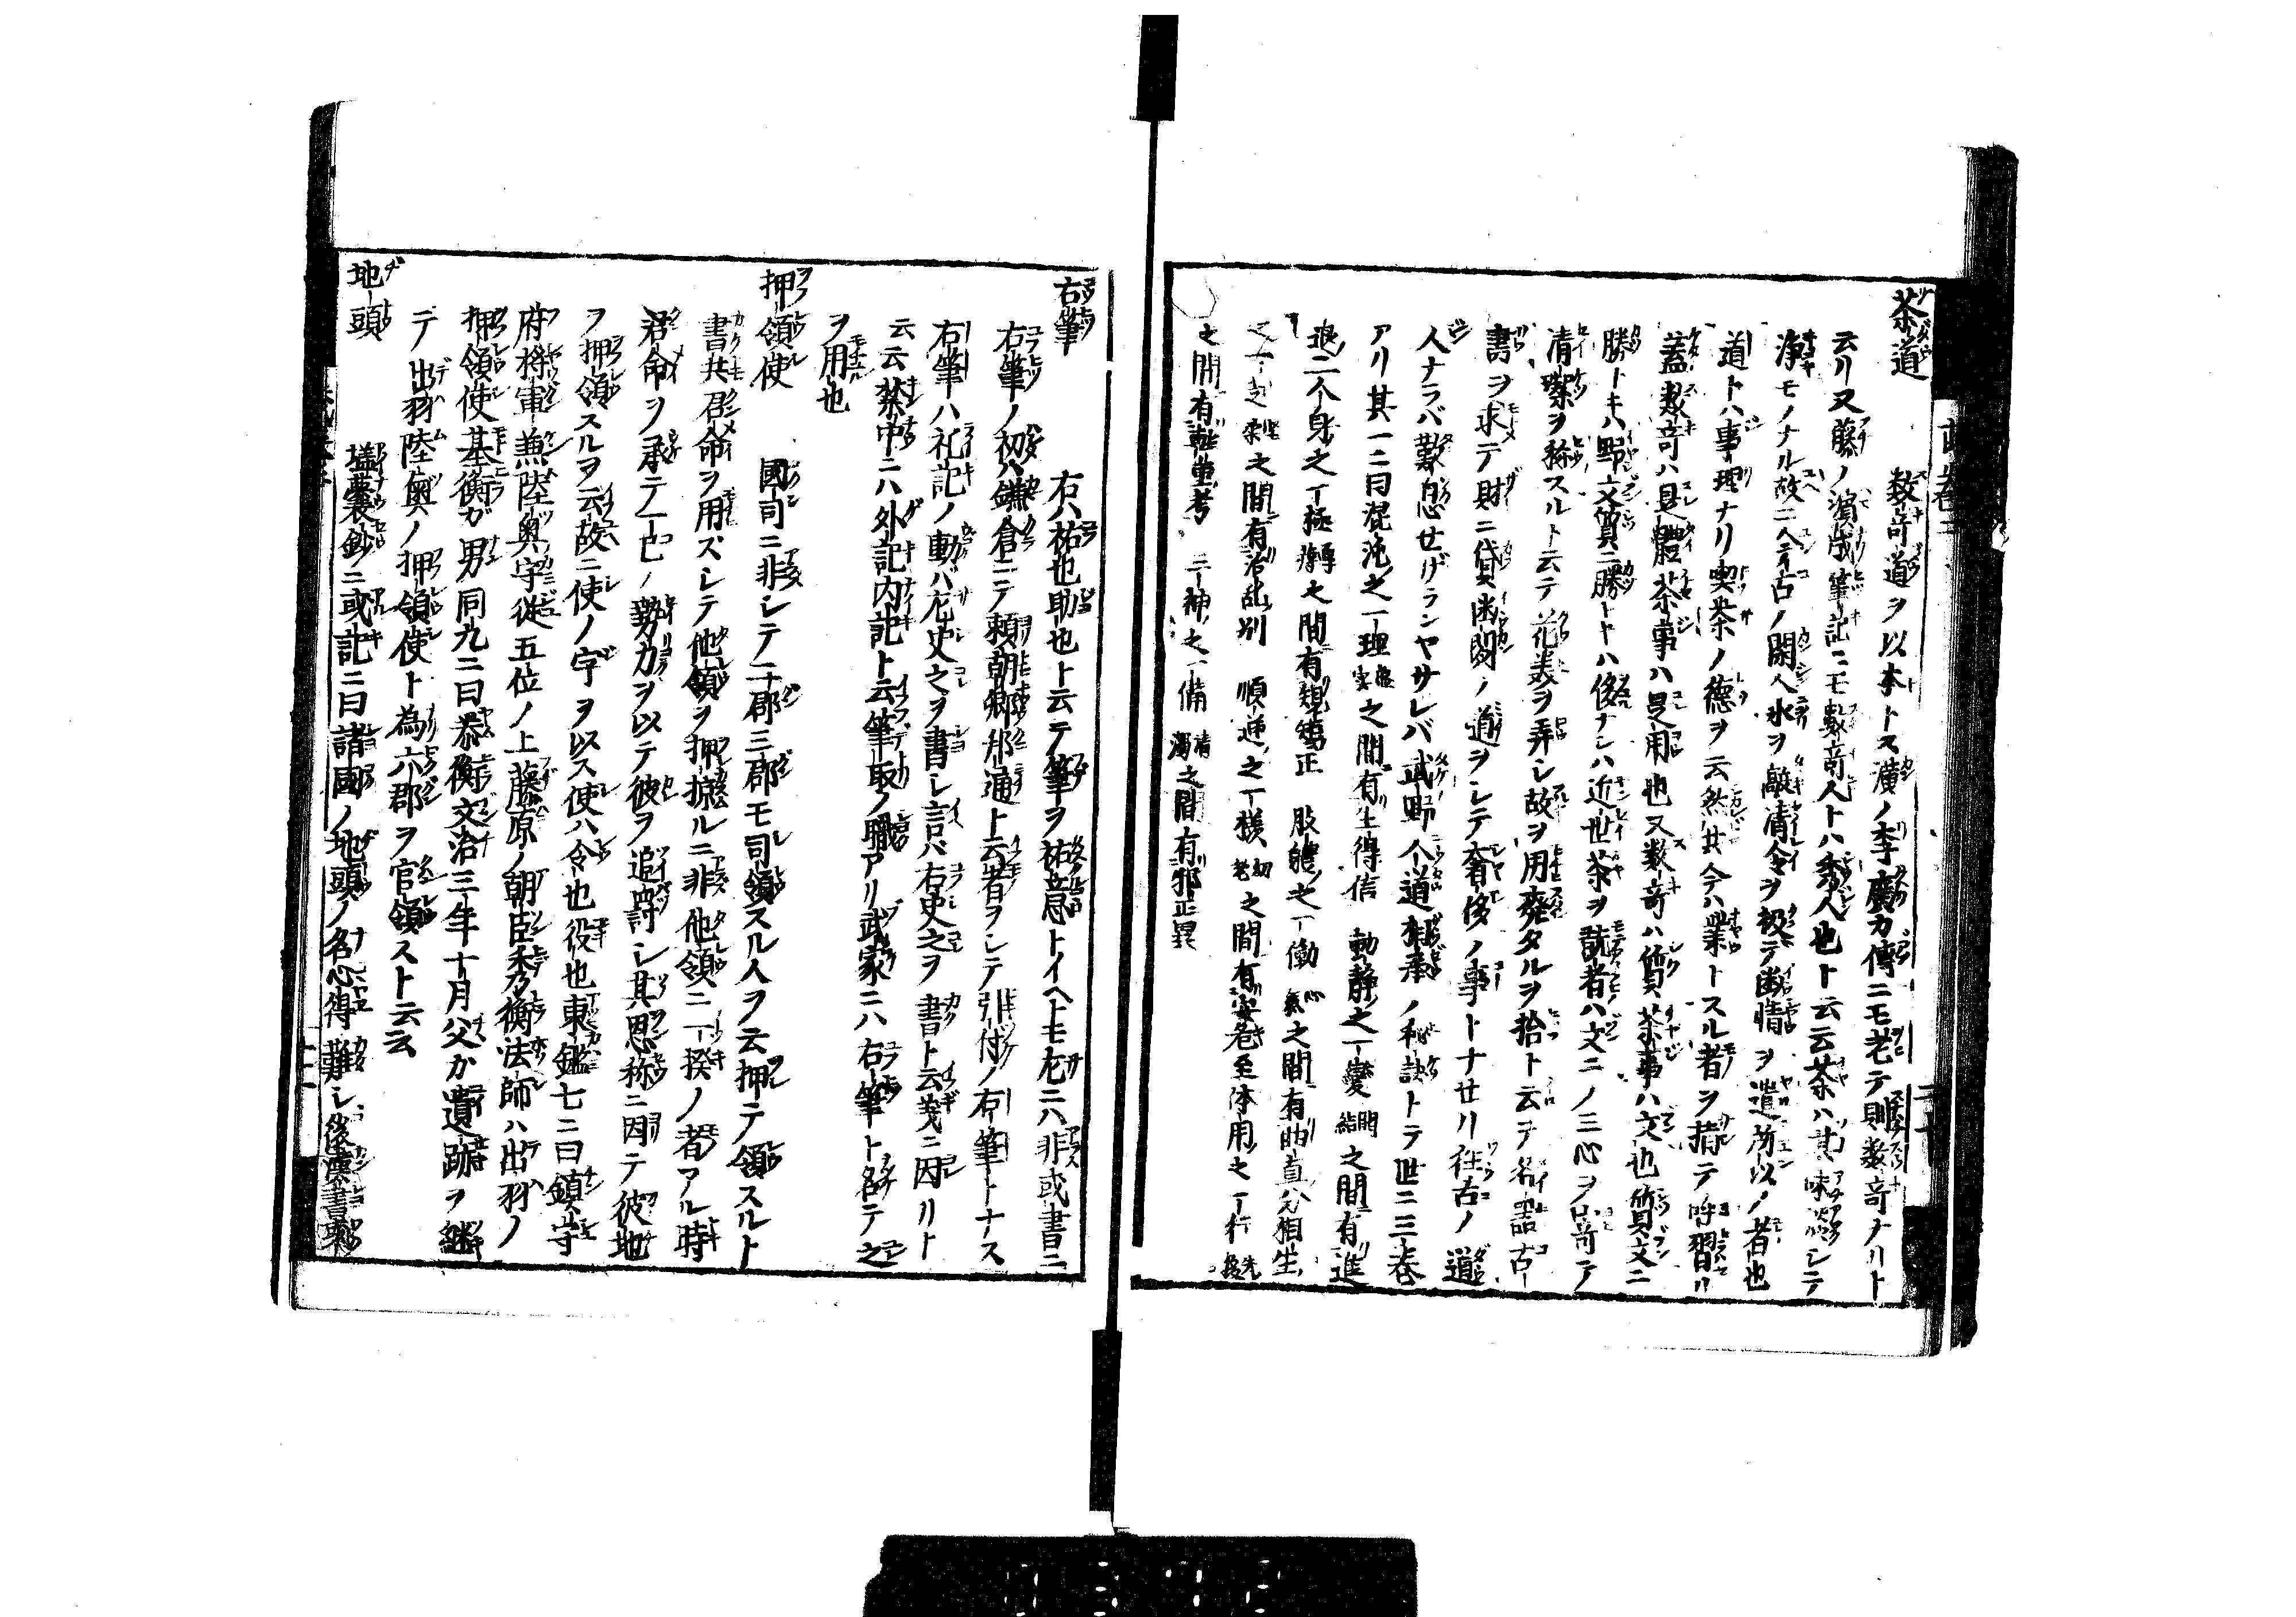 茶道　数奇道ヲ以本トス漢ノ李廣カ傳ニモ老テ則数奇ナリト
云リ又藤ノ濱成筆記ニモ數奇人トハ秀人也ト云云茶ハ其味淡シテ
浄モノナル故ニ古ノ閑人水ヲ敲清令ヲ极テ幽情ヲ遣所以ノ者也
道トハ事理ナリ喫茶ノ德ヲ云然共今ハ業トスル者ヲ指テ呼習リ
蓋数奇ハ是體茶事ハ是用也又数奇ハ質茶事ハ文也質文ニ
勝トキハ野文質ニ勝トキハ侈ナシハ近世茶ヲ翫者ハ文ニノミ心ヲ寄テ
清潔ヲ称スルト云テ花美ヲ弄レ故ヲ用廃タルヲ拾ト云テ名器古
書ヲ求テ財ニ貸幽閑ノ道ヲシテ奢侈ノ事トナセリ往古ノ道
人ナラバ歎息セザランヤサレバ武野ノ道相承ノ秘訣トテ世ニ三巻
アリ其一ニ曰混沌之一理 虚実之間有生得信 動静之一變 開結之間有進
退二个身之一極 之間有規矩正 股體之一働 心氣之間有曲直分相生
之間有治乱別 順逆之一様 老幼之間有安危至体用之一行 先後
之間有軽重考 三神之一備 清濁之間有邪正異
右筆　右ハ祐也助也ト云テ筆ヲ祐意トイヘトモ左ニハ非或書ニ
右筆ノ初ハ鎌倉ニテ頼朝卿邦通ト云者ヲシテ引付ノ右筆トナス
右筆ハ礼記ノ動バ左史之ヲ書シ言バ右史之ヲ書ト云義ニ因リト
云云禁中ニハ外記内記ト云筆取ノ職アリ武家ニハ右筆ト名テ之
ヲ用也
押領使　國司ニ非シテ二郡三郡モ司領スル人ヲ云押テ領スルト
書共君命ヲ用ズシテ他領ヲ押掠ルニ非他領ニ一揆ノ者アル時
君命ヲ承テ一己ノ勢力ヲ以テ彼ヲ追討シ其恩称ニ因テ彼地
ヲ押領スルヲ云故ニ使ノ字ヲ以ス使ハ令也役也東鑑七ニ曰鎮守
府将軍兼陸奥守從五位ノ上藤原ノ朝臣秀衡法師ハ出羽ノ
押領使基衡ガ男同九ニ曰泰衡文治三年十月父カ遺跡ヲ継
テ出羽陸奥ノ押領使ト為六郡ヲ官領スト云云
地頭　壒囊鈔ニ或記ニ曰諸國ノ地頭ノ名心得難シ後漢書東